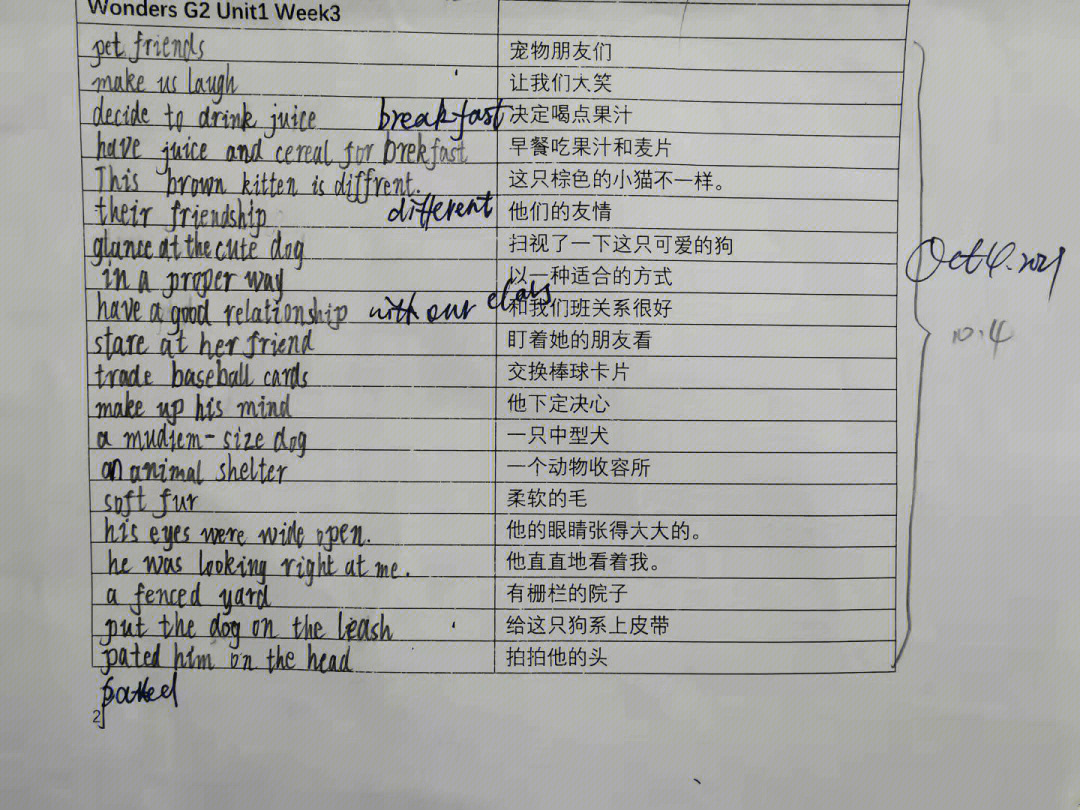 Wonders G2 Unit1 Week3
pet friends 宠物朋友们
make us laugh 让我们大笑
decide to drink juice breakfast 决定喝点果汁
have juice and cereal for brekfast 早餐吃果汁和麦片
This brown kitten is diffrent. 这只棕色的小猫不一样。
their friendship different 他们的友情
glance at the cute dog 扫视了一下这只可爱的狗
in a proper way 以一种适合的方式
have a good relationship with our class 和我们班关系很好
stare at her friend 盯着她的朋友看
trade baseball cards 交换棒球卡片
make up his mind 他下定决心
a mudiem-size dog 一只中型犬
an animal shelter 一个动物收容所
soft fur 柔软的毛
his eyes were wide open. 他的眼睛张得大大的。
he was looking right at me. 他直直地看着我。
a fenced yard 有栅栏的院子
put the dog on the leash 给这只狗系上皮带
pated him on the head 拍拍他的头
patted
2
Oct 4. 2021
10.4